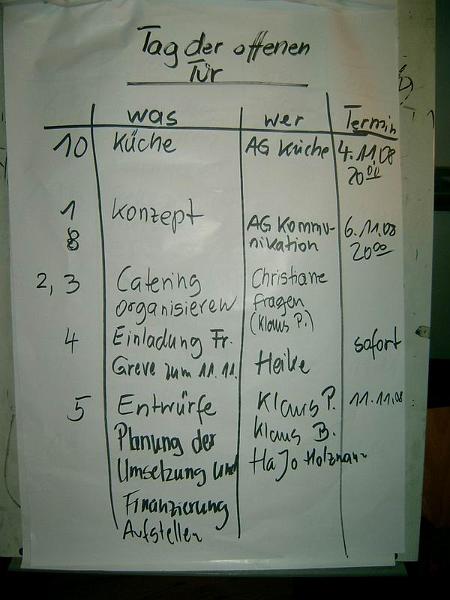 Tag der offenen
Tür
was wer Termin
10 Küche AG Küche 4.11.08
20⁰⁰
1 Konzept AG Kommu- 6.11.08
8 nikation 20⁰⁰
2, 3 Catering Christiane
organisieren fragen
(Klaus P.)
4 Einladung Fr. sofort
Greve zum 11.11. Heike
5 Entwürfe Klaus P. 11.11.08
Planung der Klaus B.
Umsetzung und HaJo Holzmann
Finanzierung
Aufstellen